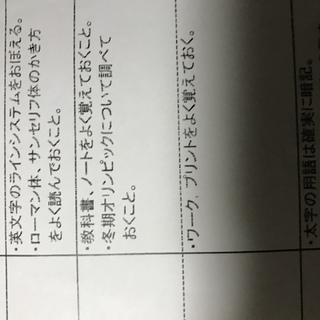 ・英文字のラインシステムをおぼえる。
・ローマン体、サンセリフ体のかき方
をよく読んでおくこと。
・教科書、ノートをよく覚えておくこと。
・冬期オリンピックについて調べて
おくこと。
・ワーク、プリントをよく覚えておく。
・太字の用語は確実に暗記。